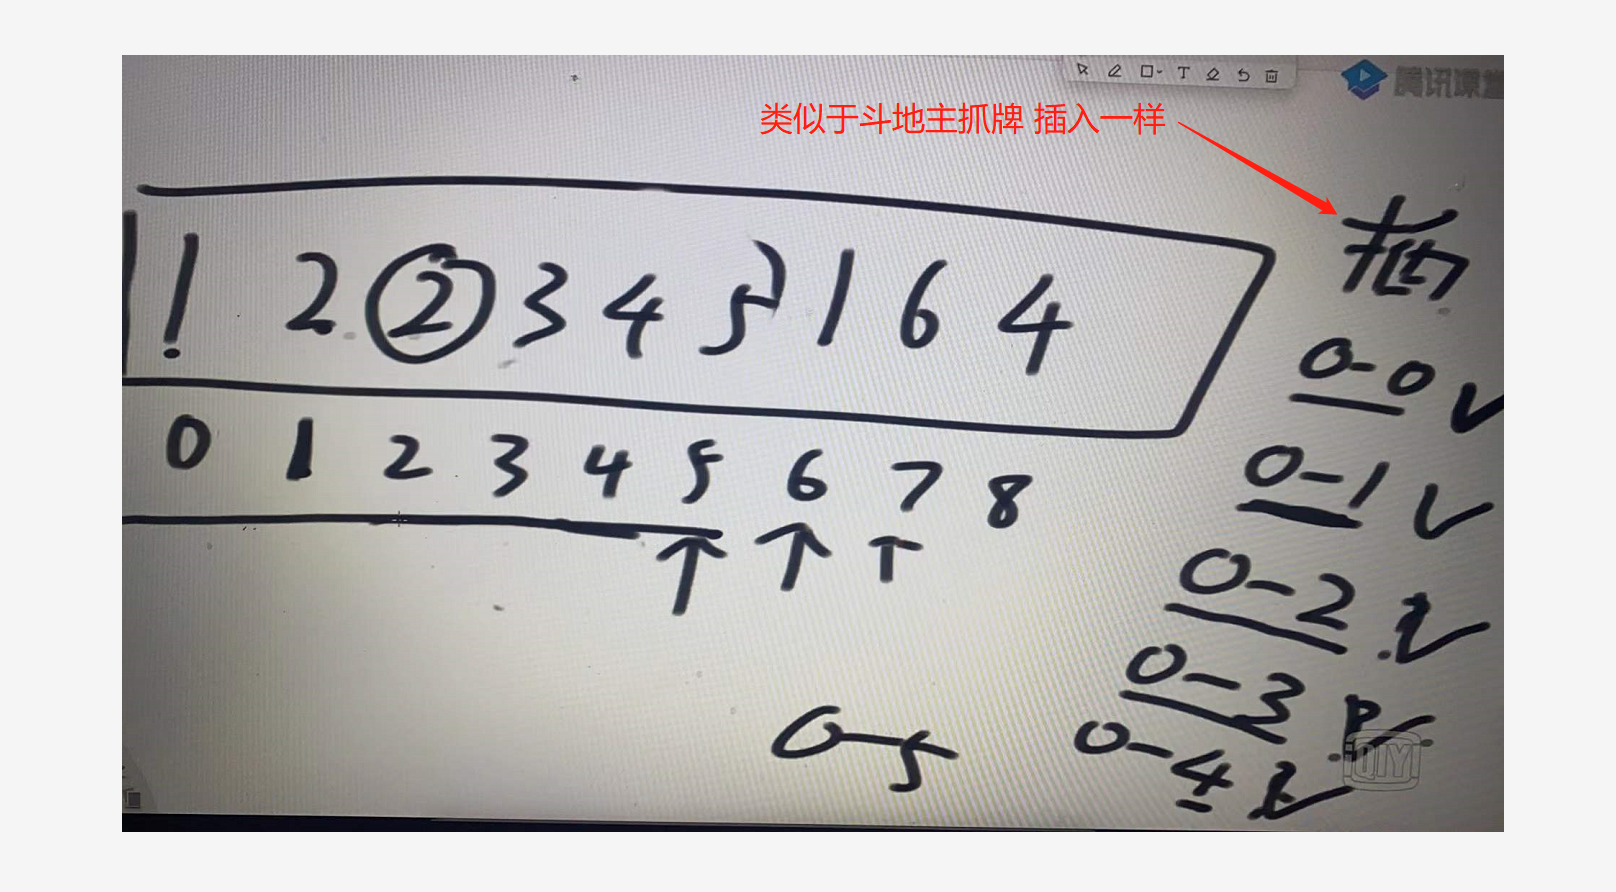 腾讯课堂
类似于斗地主抓牌 插入一样
插
1 2 2 3 4 5 1 6 4
0-0
0 1 2 3 4 5 6 7 8
0-1
0-2
0-3
0-5
0-4
QIYI